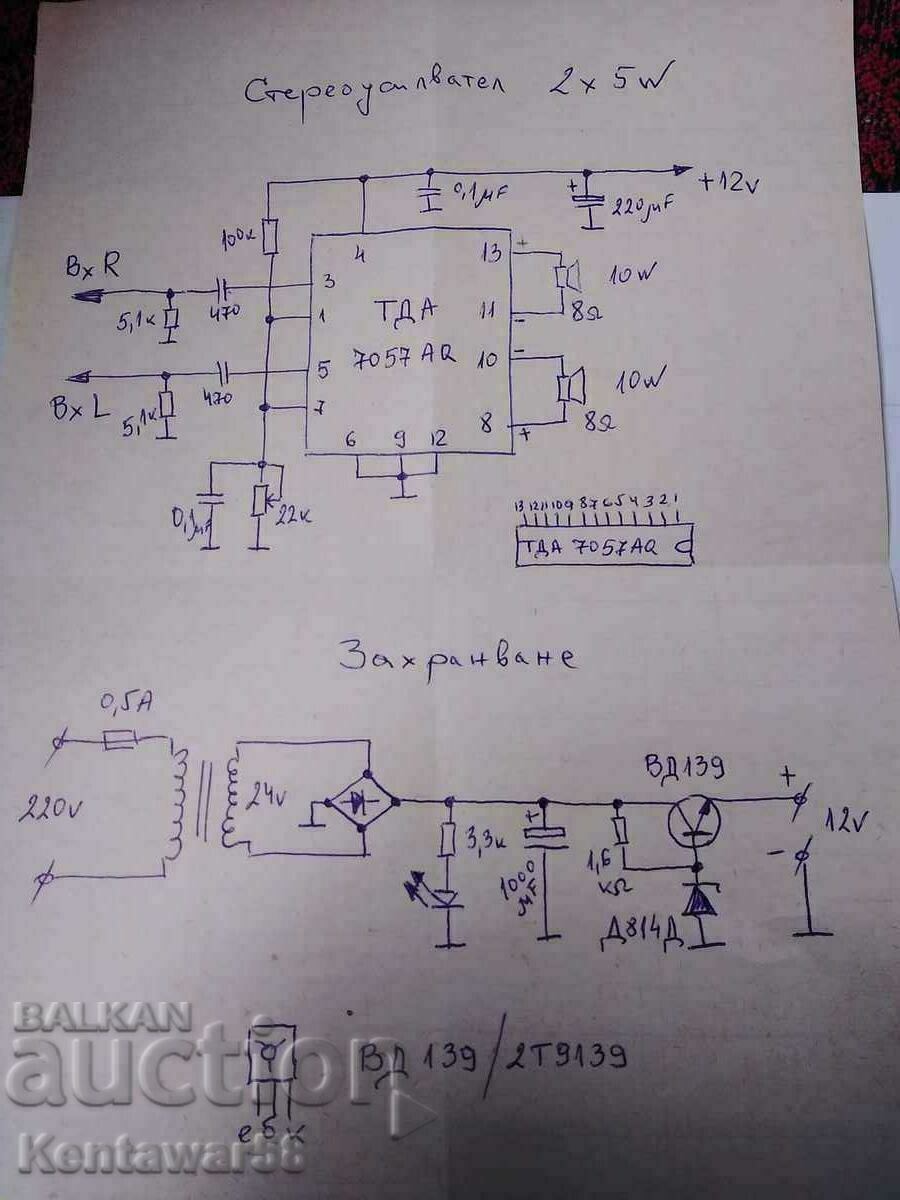 Стереоусилвател 2 x 5W
+12v
0,1μF
220μF
100к
Вх R
5,1к
470
Вх L
5,1к
470
0,1μF
22к
3
1
5
7
4
6
9
12
13
11
10
8
ТДА
7057AQ
+
-
-
+
10W
8Ω
10W
8Ω
13 12 11 10 9 8 7 6 5 4 3 2 1
ТДА 7057AQ
Захранване
0,5A
220v
24v
3,3к
+
1000
μF
1,6
кΩ
ВД139
Д814Д
+
12v
-
ВД 139/2Т9139
е б к
BALKAN
auction
Kentawar58